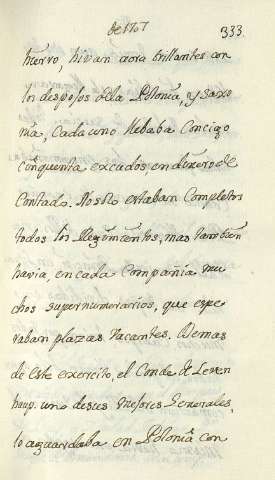 de 1707
333
hierro, hivan aora brillantes con
los despojos de la Polonia, y Saxo
nia, Cada uno llebaba Consigo
cinquenta excudos en dinero de
Contado. No solo estaban Completos
todos los Regimientos, mas tambien
havia, en cada Compañia mu
chos supernumerarios, que espe
raban plazas vacantes. Ademas
de este exercito, el Conde de Leven
haup. uno de sus mejores Generales,
lo aguardaba en Polonia con